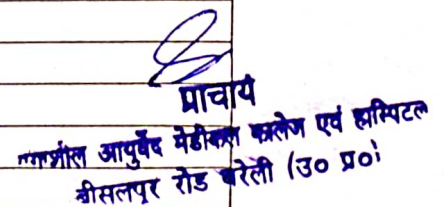 प्राचार्य
आयुर्वेद मेडीकल कालेज एवं हास्पिटल
बीसलपुर रोड बरेली (उ० प्र०)